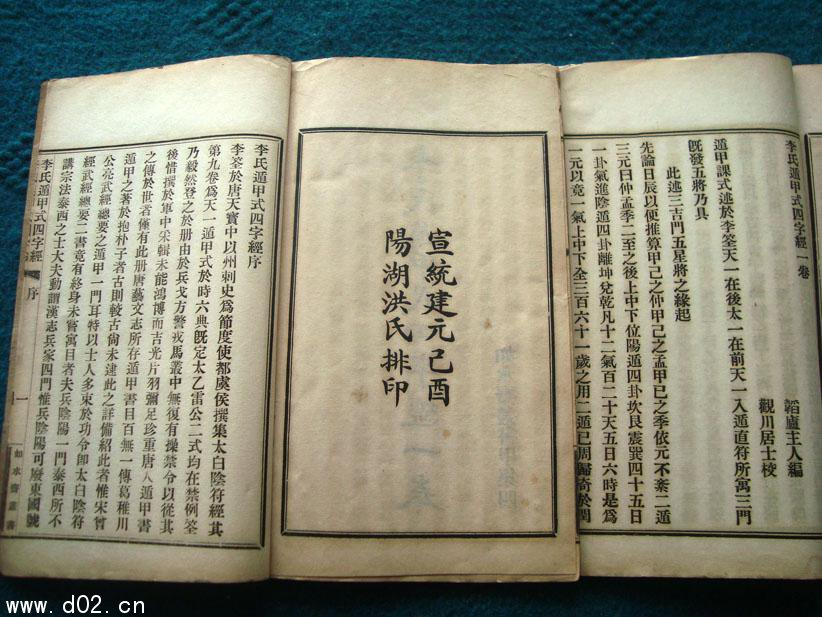 李氏遁甲式四字經一卷
韜廬主人編
觀川居士校
遁甲課式述於李筌天一在後太一在前天一入遁直符所寓三門
旣發五將乃具
此述三吉門五星將之緣起
先論日辰以便推算甲己之仲甲己之孟甲己之季依元不紊二遁
三元曰仲孟季二至之後上中下位陽遁四卦坎艮震巽四十五日
一卦氣進陰遁四卦離坤兌乾凡十二氣百二十天五日六時是爲
一元以竟一氣上中下全三百六十一歲之用二遁已周歸奇於閏
宣統建元己酉
陽湖洪氏排印
李氏遁甲式四字經序
李筌於唐天寶中以州刺史爲節度使都虞侯撰集太白陰符經其
第九卷爲天一遁甲式於時六典旣定太乙雷公二式均在禁例筌
乃毅然登之於册由於兵戈方警戎馬叢中無復有操禁令以從其
後惜撰於軍中采輯未能鴻博而吉光片羽彌足珍重唐人遁甲書
之傳於世者僅有此册唐藝文志所存遁甲書目百無一傳葛稚川
遁甲之著於抱朴子者古則較古尙未逮此之詳備紹此者惟宋曾
公亮武經總要之遁甲一門耳特以士人多束於功令卽太白陰符
經武經總要二書竟有終身未嘗寓目者夫兵陰陽一門泰西所不
講宗法泰西之士大夫動謂漢志兵家四門惟兵陰陽可廢東國號
李氏遁甲式四字經
序
一
如水齋叢書
www.d02.cn